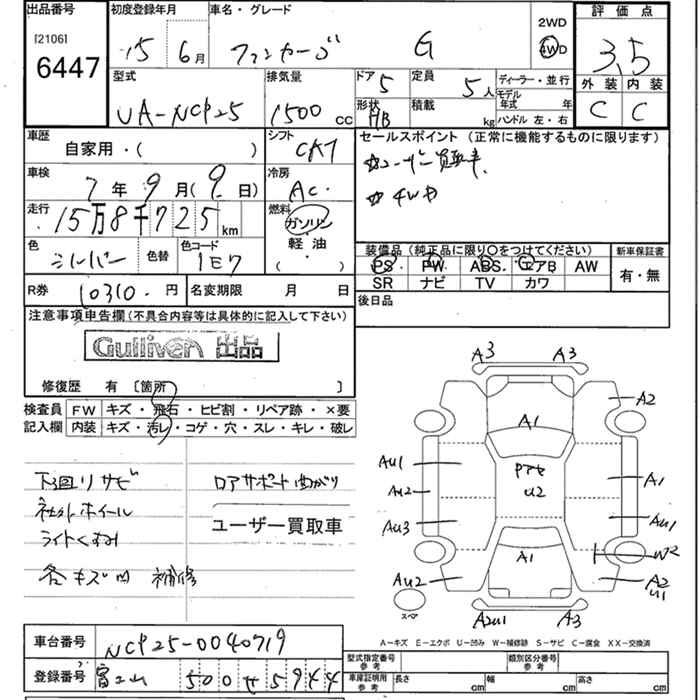 出品番号 初度登録年月 車名・グレード 2WD 評価点
[2106]
6447 15 6月 ファンカーゴ G 4WD 3.5
型式 排気量 ドア 5 定員 5人 ディーラー・並行 外装 内装
UA-NCP25 1500cc 形状 HB 積載 kg モデル年式 年 C C
ハンドル 左・右
車歴 自家用・( ) シフト CAT セールスポイント (正常に機能するものに限ります)
車検 7年9月(9日) 冷房 AC ☆ユーザー買取車.
☆4WD
走行 15万8千725km 燃料 ガソリン
軽油
( )
色 シルバー 色替 色コード 1E7 装備品 (純正品に限り○をつけてください) 新車保証書
PS PW ABS エアB AW 有・無
R券 10310.円 名変期限 月 日 SR ナビ TV カワ
後日品
注意事項申告欄(不具合内容等は具体的に記入して下さい)
Gulliver 出品
修復歴 有 [箇所 ]
検査員 FW キズ・飛石・ヒビ割・リペア跡・×要
記入欄 内装 キズ・汚レ・コゲ・穴・スレ・キレ・破レ
下廻りサビ ロアサポート曲がり
社外ホイール
ユーザー買取車
ライトくすみ
各キズ凹 補修
A3 A3
A2
A1
AU1 A1
AU2 U2
AU3 AU1
A1 W2
AU2 A2
U1
スペア
A2U1 A3
A-キズ E-エクボ U-凹み W-補修跡 S-サビ C-腐食 XX-交換済
車台番号 NCP25-0040719
型式指定番号 参考 類別区分番号 参考
登録番号 富士山 500 せ 5944
車庫証明用 参考 長さ cm 幅 cm 高さ cm